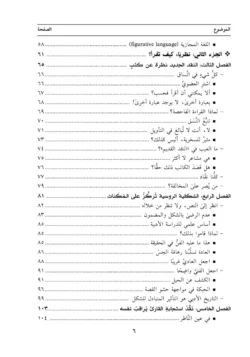 الموضوع الصفحة
▪ اللغة المجازية (figurative language) ٥٨
❖ الجزء الثاني: نظريًا، كيف نقرأ؟ ٦١
الفصل الثالث: النقد الجديد: نظرة عن كثب ٦٥
- كلُّ شيءٍ في السِّياق ٦٦
▪ الشعر العضويُّ ٦٦
▪ ألا يمكنني أن أقرأ فحسب؟ ٦٧
▪ بعبارةٍ أخرى، لا يوجد عبارة أخرى! ٦٨
- لماذا القراءة الفاحصة؟ ٦٩
▪ تتبُّع النَّسل ٧٠
▪ لا، أنت لا تُبالغ في التأويل ٧١
▪ مثيرٌ للسخرية، أليس كذلك؟ ٧٣
- ما العيب في «النقد القديم»؟ ٧٤
▪ هي مشاعر لا أكثر ٧٥
▪ هل قَصَدَ الكاتب ذلك حقًّا؟ ٧٦
- كلُّنا نقَّاد ٧٧
- من يُصر على المخالفة؟ ٧٩
الفصل الرابع: الشكلية الروسية تُركِّز على المُحدثات ٨١
- انظر إلى النص، ولا تنظر من خلاله ٨٢
▪ عدم الرضى بالشكل والمضمون ٨٣
▪ أساس علمي للدراسة الأدبية ٨٥
- لماذا قاموا بذلك؟ ٨٥
▪ هذا ما عليه الفنُّ في الحقيقة ٨٥
▪ العادة تسلُبُنا رهافة الحسّ ٨٦
▪ اجعل العاديَّ غريبًا ٨٨
- اجعل الفنيَّ واقعيًا ٩١
▪ الكشف عن الحيل ٩٤
▪ الحبكة في مواجهة حشو القصة ٩٦
- تاريخ الأدبي هو التأثير المتبادل للشكل ٩٩
الفصل الخامس: نقْدُ استجابةِ القارئ يُراقبُ نفسه ١٠٣
▪ في عين النَّاظر ١٠٤
٦